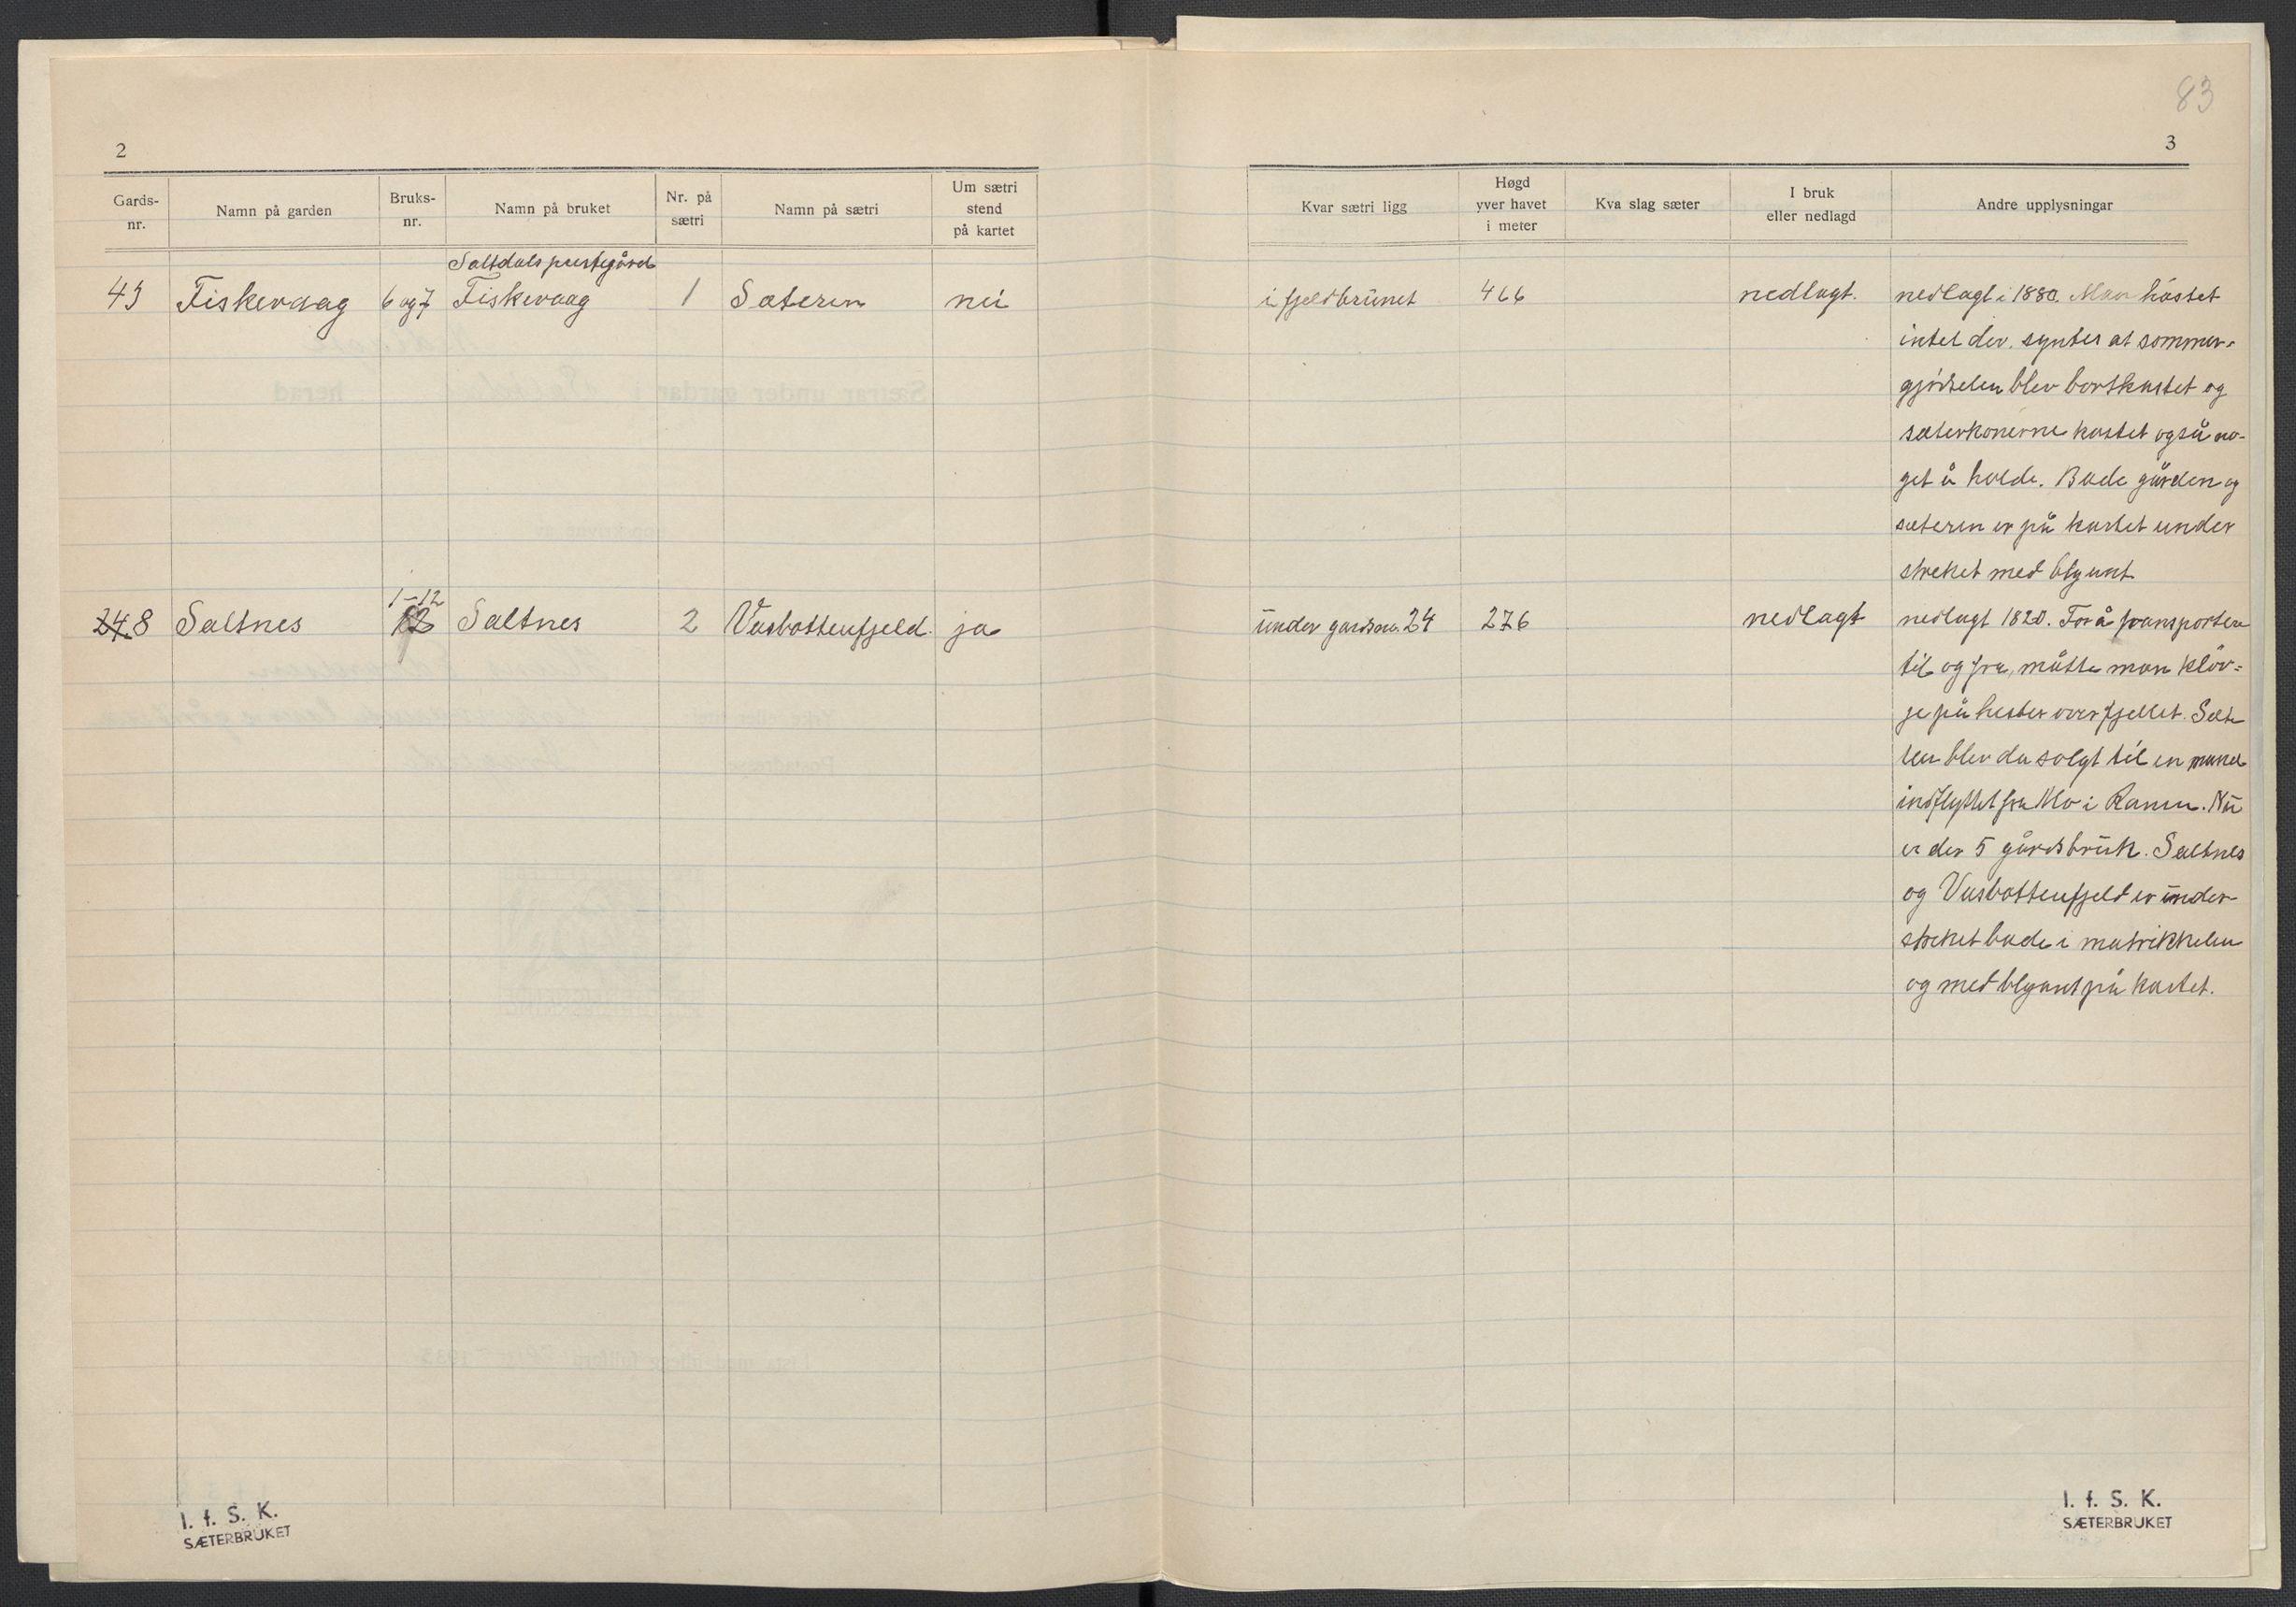 83
2
3
Gards-
nr.
Namn på garden
Bruks-
nr.
Namn på bruket
Nr. på
sætri
Namn på sætri
Um sætri
stend
på kartet
Kvar sætri ligg
Høgd
yver havet
i meter
Kva slag sæter
I bruk
eller nedlagd
Andre upplysningar
Saltdals prestegård
43 Fiskevaag 6 og 7 Fiskevaag 1 Sæteren nei i fjeldbrunet 466 nedlagt. nedlagt i 1880. Man høstet
intet der. syntes at sommer-
gjødselen blev bortkastet og
sæterkonerne kostet også no-
get å holde. Bade gården og
sæteren er på kartet under
streket med blyant
1-12
24,8 Saltnes 12 Saltnes 2 Vasbottenfjeld. ja under gardsnr. 24 276 nedlagt nedlagt 1820. For å transportere
til og fra, måtte man kløv-
je på hester over fjellet. Sæte
ren blev da solgt til en mand
indflyttet fra Mo i Ranen. Nu
er der 5 gårdsbruk. Saltnes
og Vasbottenfjeld er under-
streket bade i matrikkelen
og med blyant på kartet.
I. f. S. K.
SÆTERBRUKET
I. f. S. K.
SÆTERBRUKET